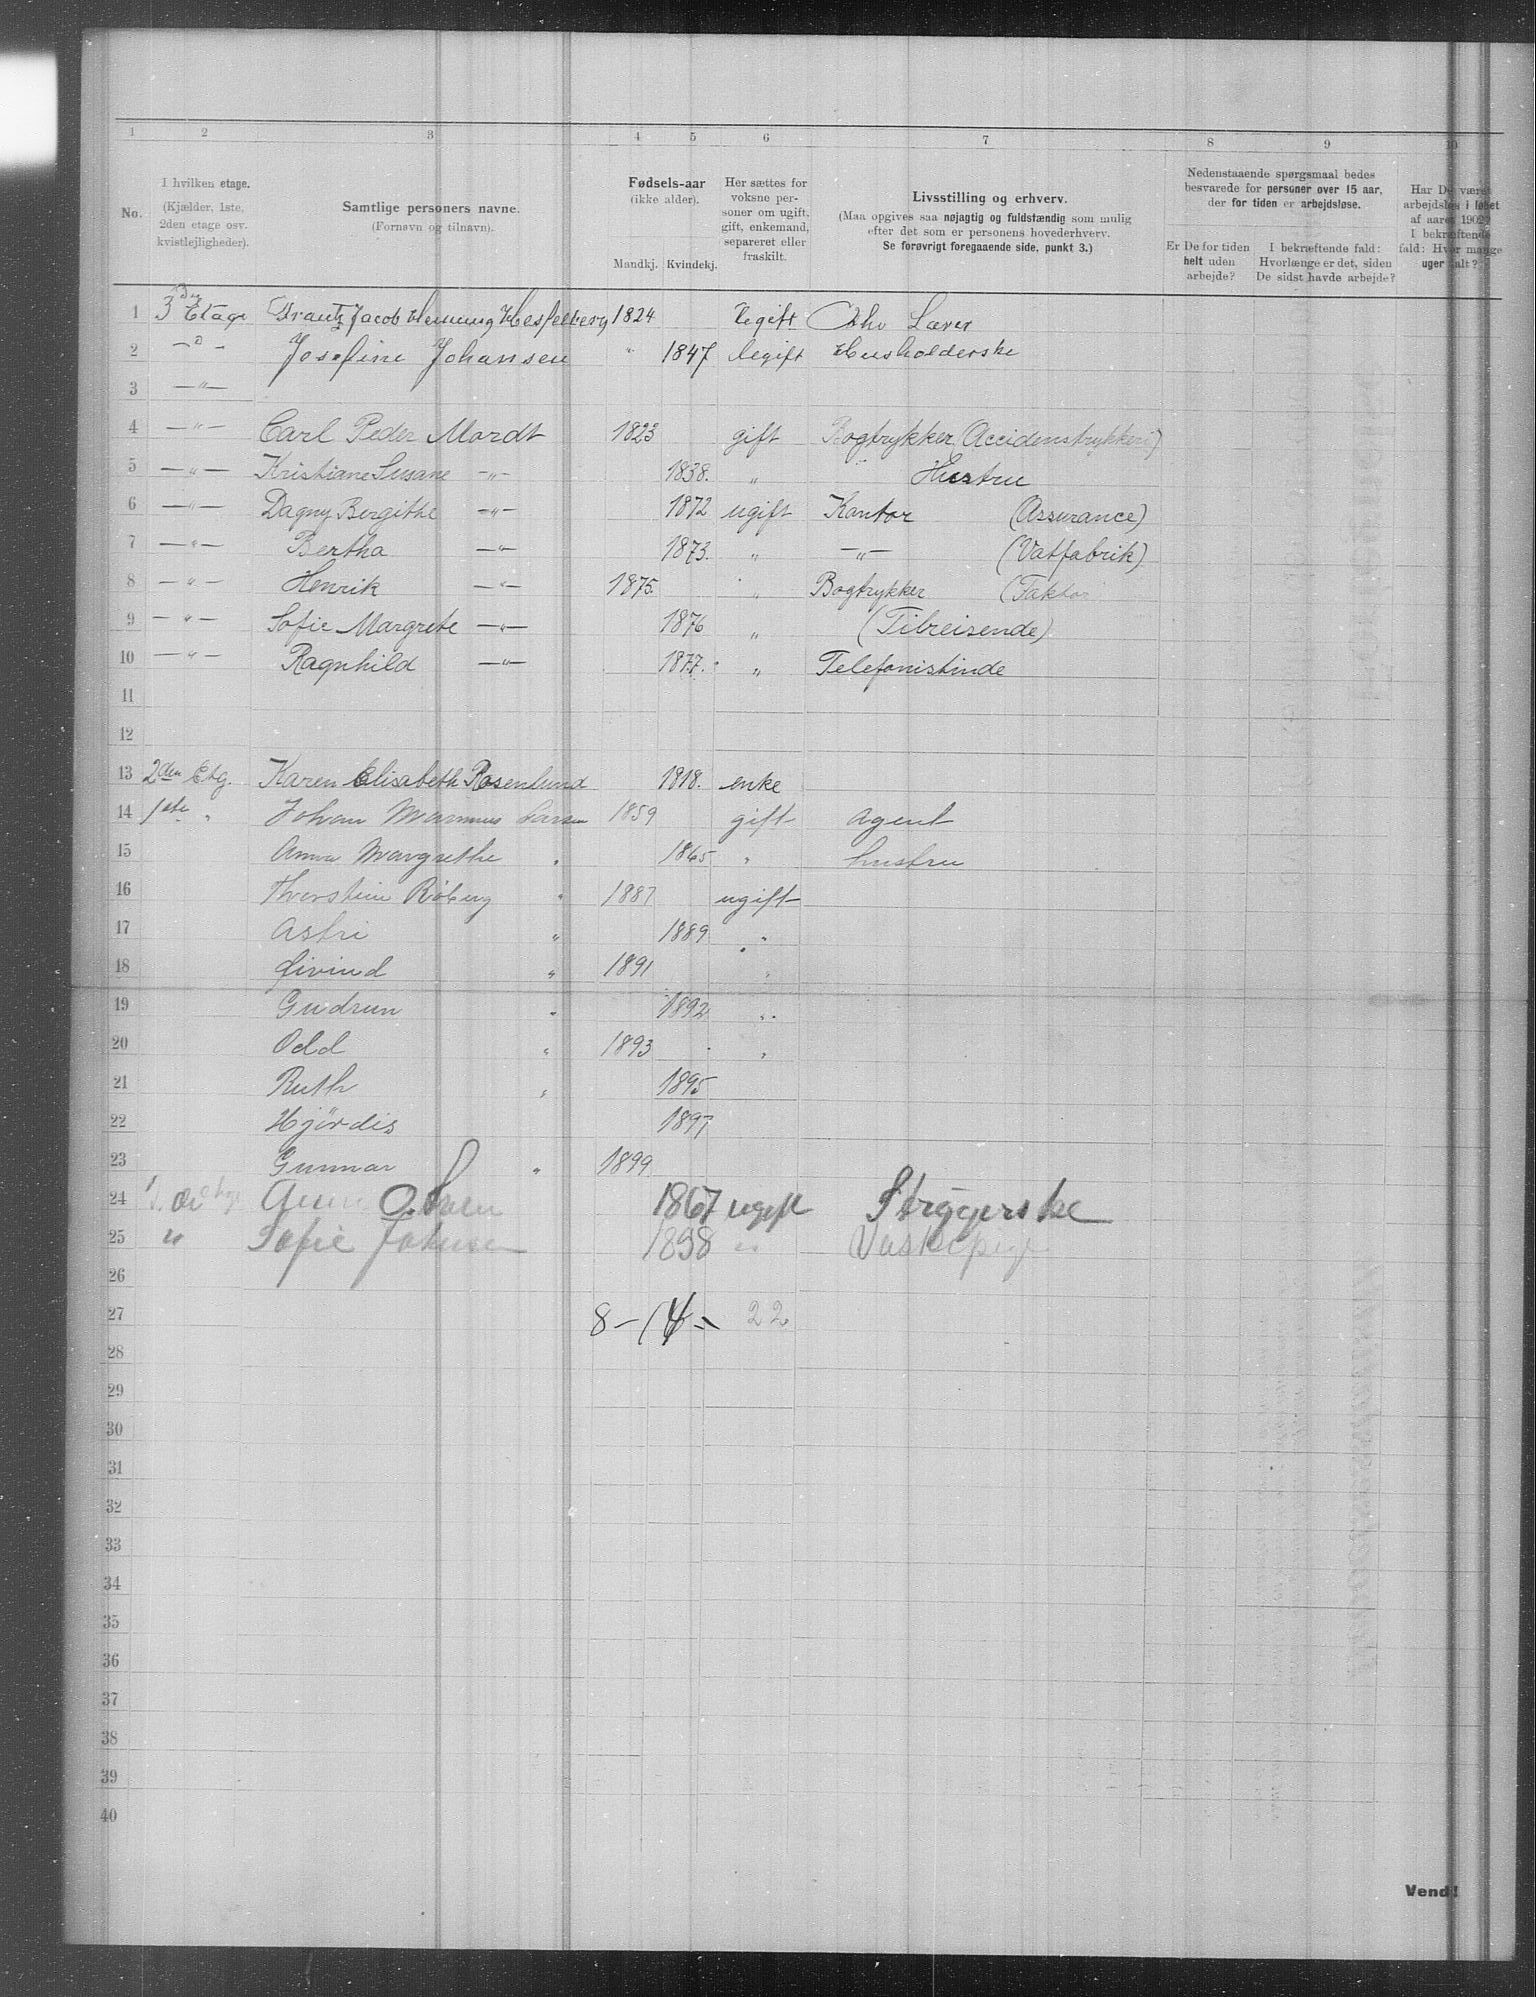 1 2 3 4 5 6 7 8 9 10
No.
I hvilken etage.
(Kjælder, 1ste,
2den etage osv.
kvistlejligheder).
Samtlige personers navne.
(Fornavn og tilnavn).
Fødsels-aar
(ikke alder).
Mandkj. Kvindekj.
Her sættes for
voksne per-
soner om ugift,
gift, enkemand,
separeret eller
fraskilt.
Livsstilling og erhverv.
(Maa opgives saa nøjagtig og fuldstændig som mulig
efter det som er personens hovederhverv.
Se forøvrigt foregaaende side, punkt 3.)
Nedenstaaende spørgsmaal bedes
besvarede for personer over 15 aar,
der for tiden er arbejdsløse.
Er De for tiden
helt uden
arbejde?
I bekræftende fald:
Hvorlænge er det, siden
De sidst havde arbejde?
Har De været
arbejdsløs i løbet
af aaret 1902?
I bekræftende
fald: Hvor mange
uger ialt?
1 3die Etage Frantz Jacob Henning Hesselberg 1824 Ugift Lærer
2 — " — Josefine Johansen " 1847 Ugift Husholderske
3 — " —
4 — " — Carl Peder Mordt 1823 gift Bogtrykker (Accidenstrykkeri)
5 — " — Kristiane Susane — " — 1838. " Hustru
6 — " — Dagny Bergithe — " — 1872 ugift Kontor (Assurance)
7 — " — Bertha — " — 1873. " — " — (Vatfabrik)
8 — " — Henrik — " — 1875. " Bogtrykker (Faktor
9 — " — Sofie Margrete — " — 1876 " (Tilreisende)
10 — " — Ragnhild — " — 1877. " Telefonistinde
11
12
13 2den Etg. Karen Elisabeth Rosenlund 1818. enke
14 1ste " Johan Marinius Larsen 1859 gift Agent
15 Anna Margrethe " 1865 " hustru
16 Thorstein Röberg " 1887 ugift
17 Astri " 1889 "
18 Eivind " 1891 "
19 Gudrun " 1892 "
20 Odd " 1893 "
21 Ruth " 1895
22 Hjördis 1897
23 Gunnar " 1899
24 Olsen 1867 ugift Strygerske
25 " Sofie Johnsen 1898 " Vaskepige
26
27 8 — 14 — 22
28
29
30
31
32
33
34
35
36
37
38
39
40
Vend!